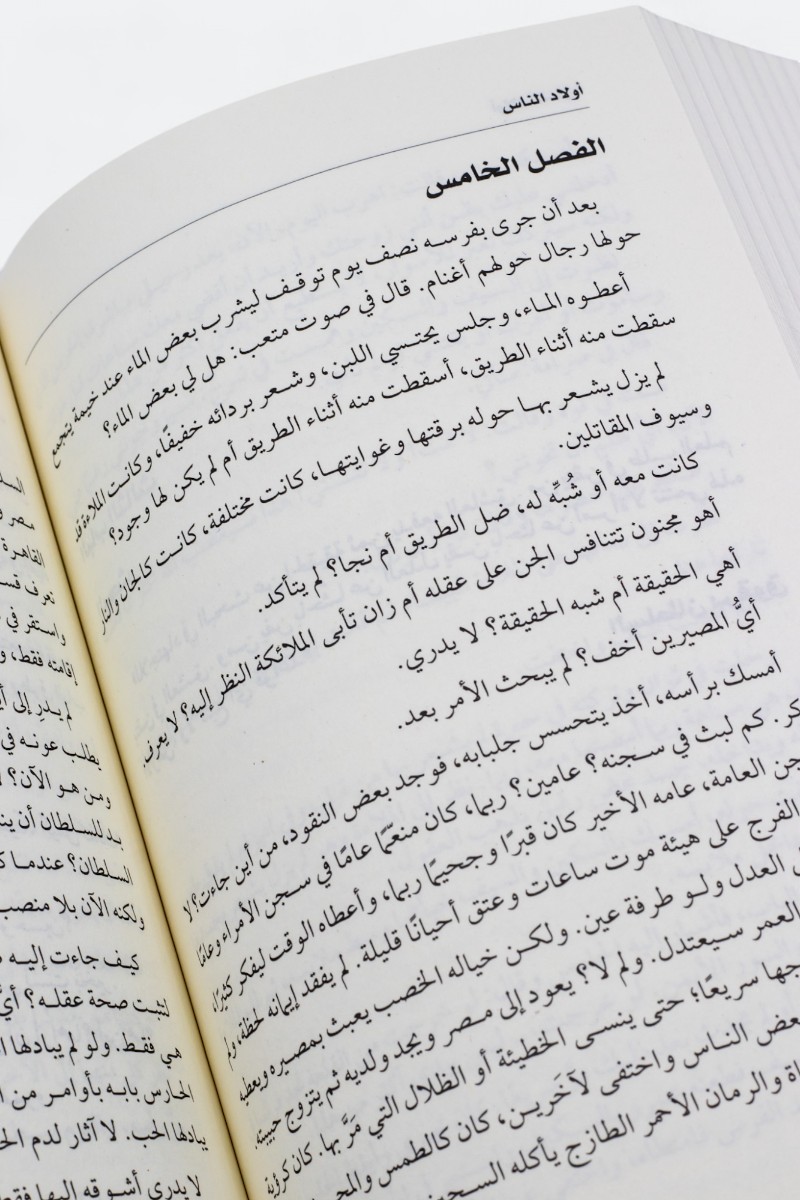 أولاد الناس
الفصل الخامس
بعد أن جرى بفرسه نصف يوم توقف ليشرب بعض الماء عند خيمة يتجمع
حولها رجال حولهم أغنام. قال في صوت متعب: هل لي بعض الماء؟
أعطوه الماء، وجلس يحتسي اللبن، وشعر بردائه خفيفًا، وكانت الملاءة قد
سقطت منه أثناء الطريق، أسقطت منه أثناء الطريق أم لم يكن لها وجود؟
لم يزل يشعر بها حوله برقتها وغوايتها، كانت مختلفة، كانت كالجان والنار
وسيوف المقاتلين.
كانت معه أو شُبِّه له، ضل الطريق أم نجا؟ لم يتأكد.
أهو مجنون تتنافس الجن على عقله أم زان تأبى الملائكة النظر إليه؟ لا يعرف.
أهي الحقيقة أم شبه الحقيقة؟ لا يدري.
أيُّ المصيرين أخف؟ لم يبحث الأمر بعد.
أمسك برأسه، أخذ يتحسس جلبابه، فوجد بعض النقود، من أين جاءت؟ لا
كر. كم لبث في سجنه؟ عامين؟ ربما، كان منعَّمًا عامًا في سجن الأمراء وعامًا
جن العامة، عامه الأخير كان قبرًا وجحيمًا ربما، وأعطاه الوقت ليفكر كثيرًا،
الفرج على هيئة موت ساعات وعتق أحيانًا قليلة. لم يفقد إيمانه لحظة، ولم
العدل ولو طرفة عين. ولكن خياله الخصب يعبث بمصيره ويعطيه
العمر سيعتدل. ولم لا؟ يعود إلى مصر ويجد ولديه ثم يتزوج حبيبته،
جها سريعًا؛ حتى ينسى الخطيئة أو الظلال التي مَرَّ بها. كان كرؤية
بعض الناس واختفى لآخَرين، كان كالطمس والمح
اة والرمان الأحمر الطازج يأكله السجين
مصر و
القاهرة
تعرف قس
واستقر في
إقامته فقط، و
لم يدرِ إلى أي
يطلب عونه في
ومن هو الآن؟
بد للسلطان أن ين
السلطان؟ عندما ك
ولكنه الآن بلا منصب
كيف جاءت إليه
لتثبت صحة عقله؟ أيُّ
هي فقط. ولو لم يبادلها ا
الحارس بابه بأوامر من ا
يبادلها الحب. لا آثار لدم الح
لا يدري أشوقه إليها فقط